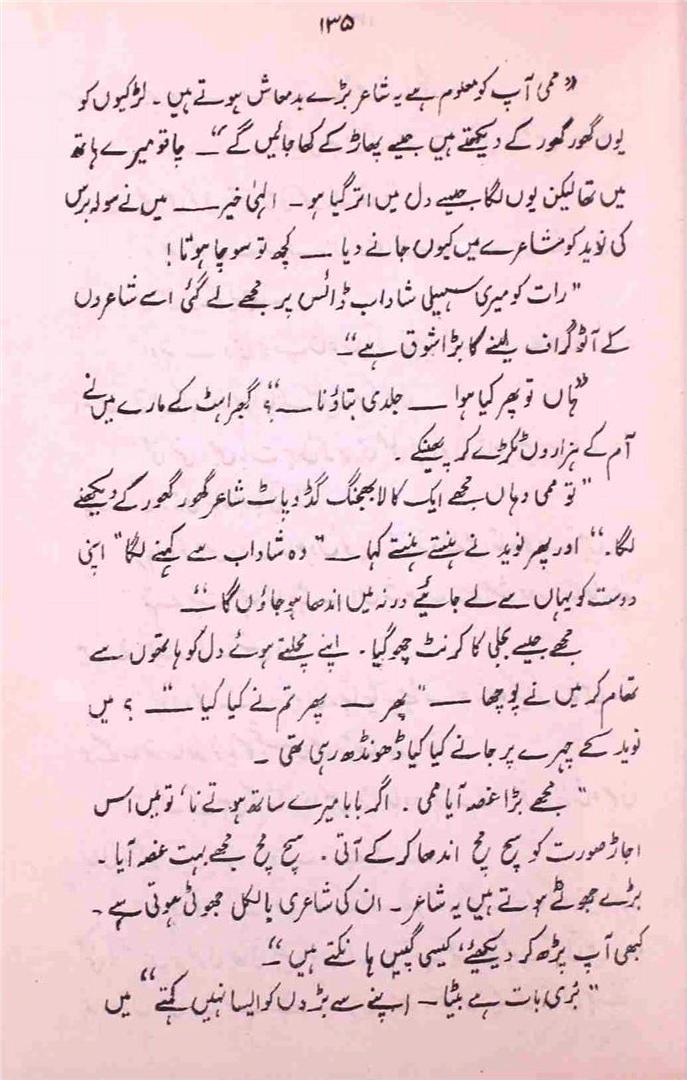 ۱۳۵
”ممی آپ کو معلوم ہے یہ شاعر بڑے بدمعاش ہوتے ہیں۔ لڑکیوں کو
یوں گھور گھور کے دیکھتے ہیں جیسے پھاڑ کے کھا جائیں گے“ ۔ چاقو میرے ہاتھ
میں تھا لیکن یوں لگا جیسے دل میں اتر گیا ہو۔ الٰہی خیر ـــ میں نے سولہ برس
کی نوید کو مشاعرے میں کیوں جانے دیا ـــ کچھ تو سوچا ہوتا!
”رات کو میری سہیلی شاداب ڈائس پر مجھے لے گئی اسے شاعروں
کے آٹوگراف لینے کا بڑا شوق ہے“۔
”ہاں تو پھر کیا ہوا ـــ جلدی بتاؤ نا ـــ“؟ گھبراہٹ کے مارے میں نے
آم کے ہزاروں ٹکڑے کر پھینکے۔
”تو ممی وہاں مجھے ایک کالا بھجنگ گڈ وپاٹ شاعر گھور گھور کے دیکھنے
لگا۔“ اور پھر نوید نے ہنستے ہنستے کہا ـــ ”وہ شاداب سے کہنے لگا“ اپنی
دوست کو یہاں سے لے جائیے ورنہ میں اندھا ہو جاؤں گا“۔
مجھے جیسے بجلی کا کرنٹ چھو گیا۔ اپنے مچلتے ہوئے دل کو ہاتھوں سے
تھام کر میں نے پوچھا ـــ ”پھر ـــ پھر تم نے کیا کیا ـــ“؟ میں
نوید کے چہرے پر جانے کیا کیا ڈھونڈھ رہی تھی۔
”مجھے بڑا غصہ آیا ممی۔ اگر بابا میرے ساتھ ہوتے نا، تو میں اس
اجاڑ صورت کو سچ مچ اندھا کر کے آتی۔ سچ مچ مجھے بہت غصہ آیا۔
بڑے جھوٹے ہوتے ہیں یہ شاعر۔ ان کی شاعری بالکل جھوٹی ہوتی ہے۔
کبھی آپ پڑھ کر دیکھیئے، کیسی گپیں ہانکتے ہیں“۔
”بُری بات ہے بیٹا ۔ اپنے سے بڑوں کو ایسا نہیں کہتے“ میں